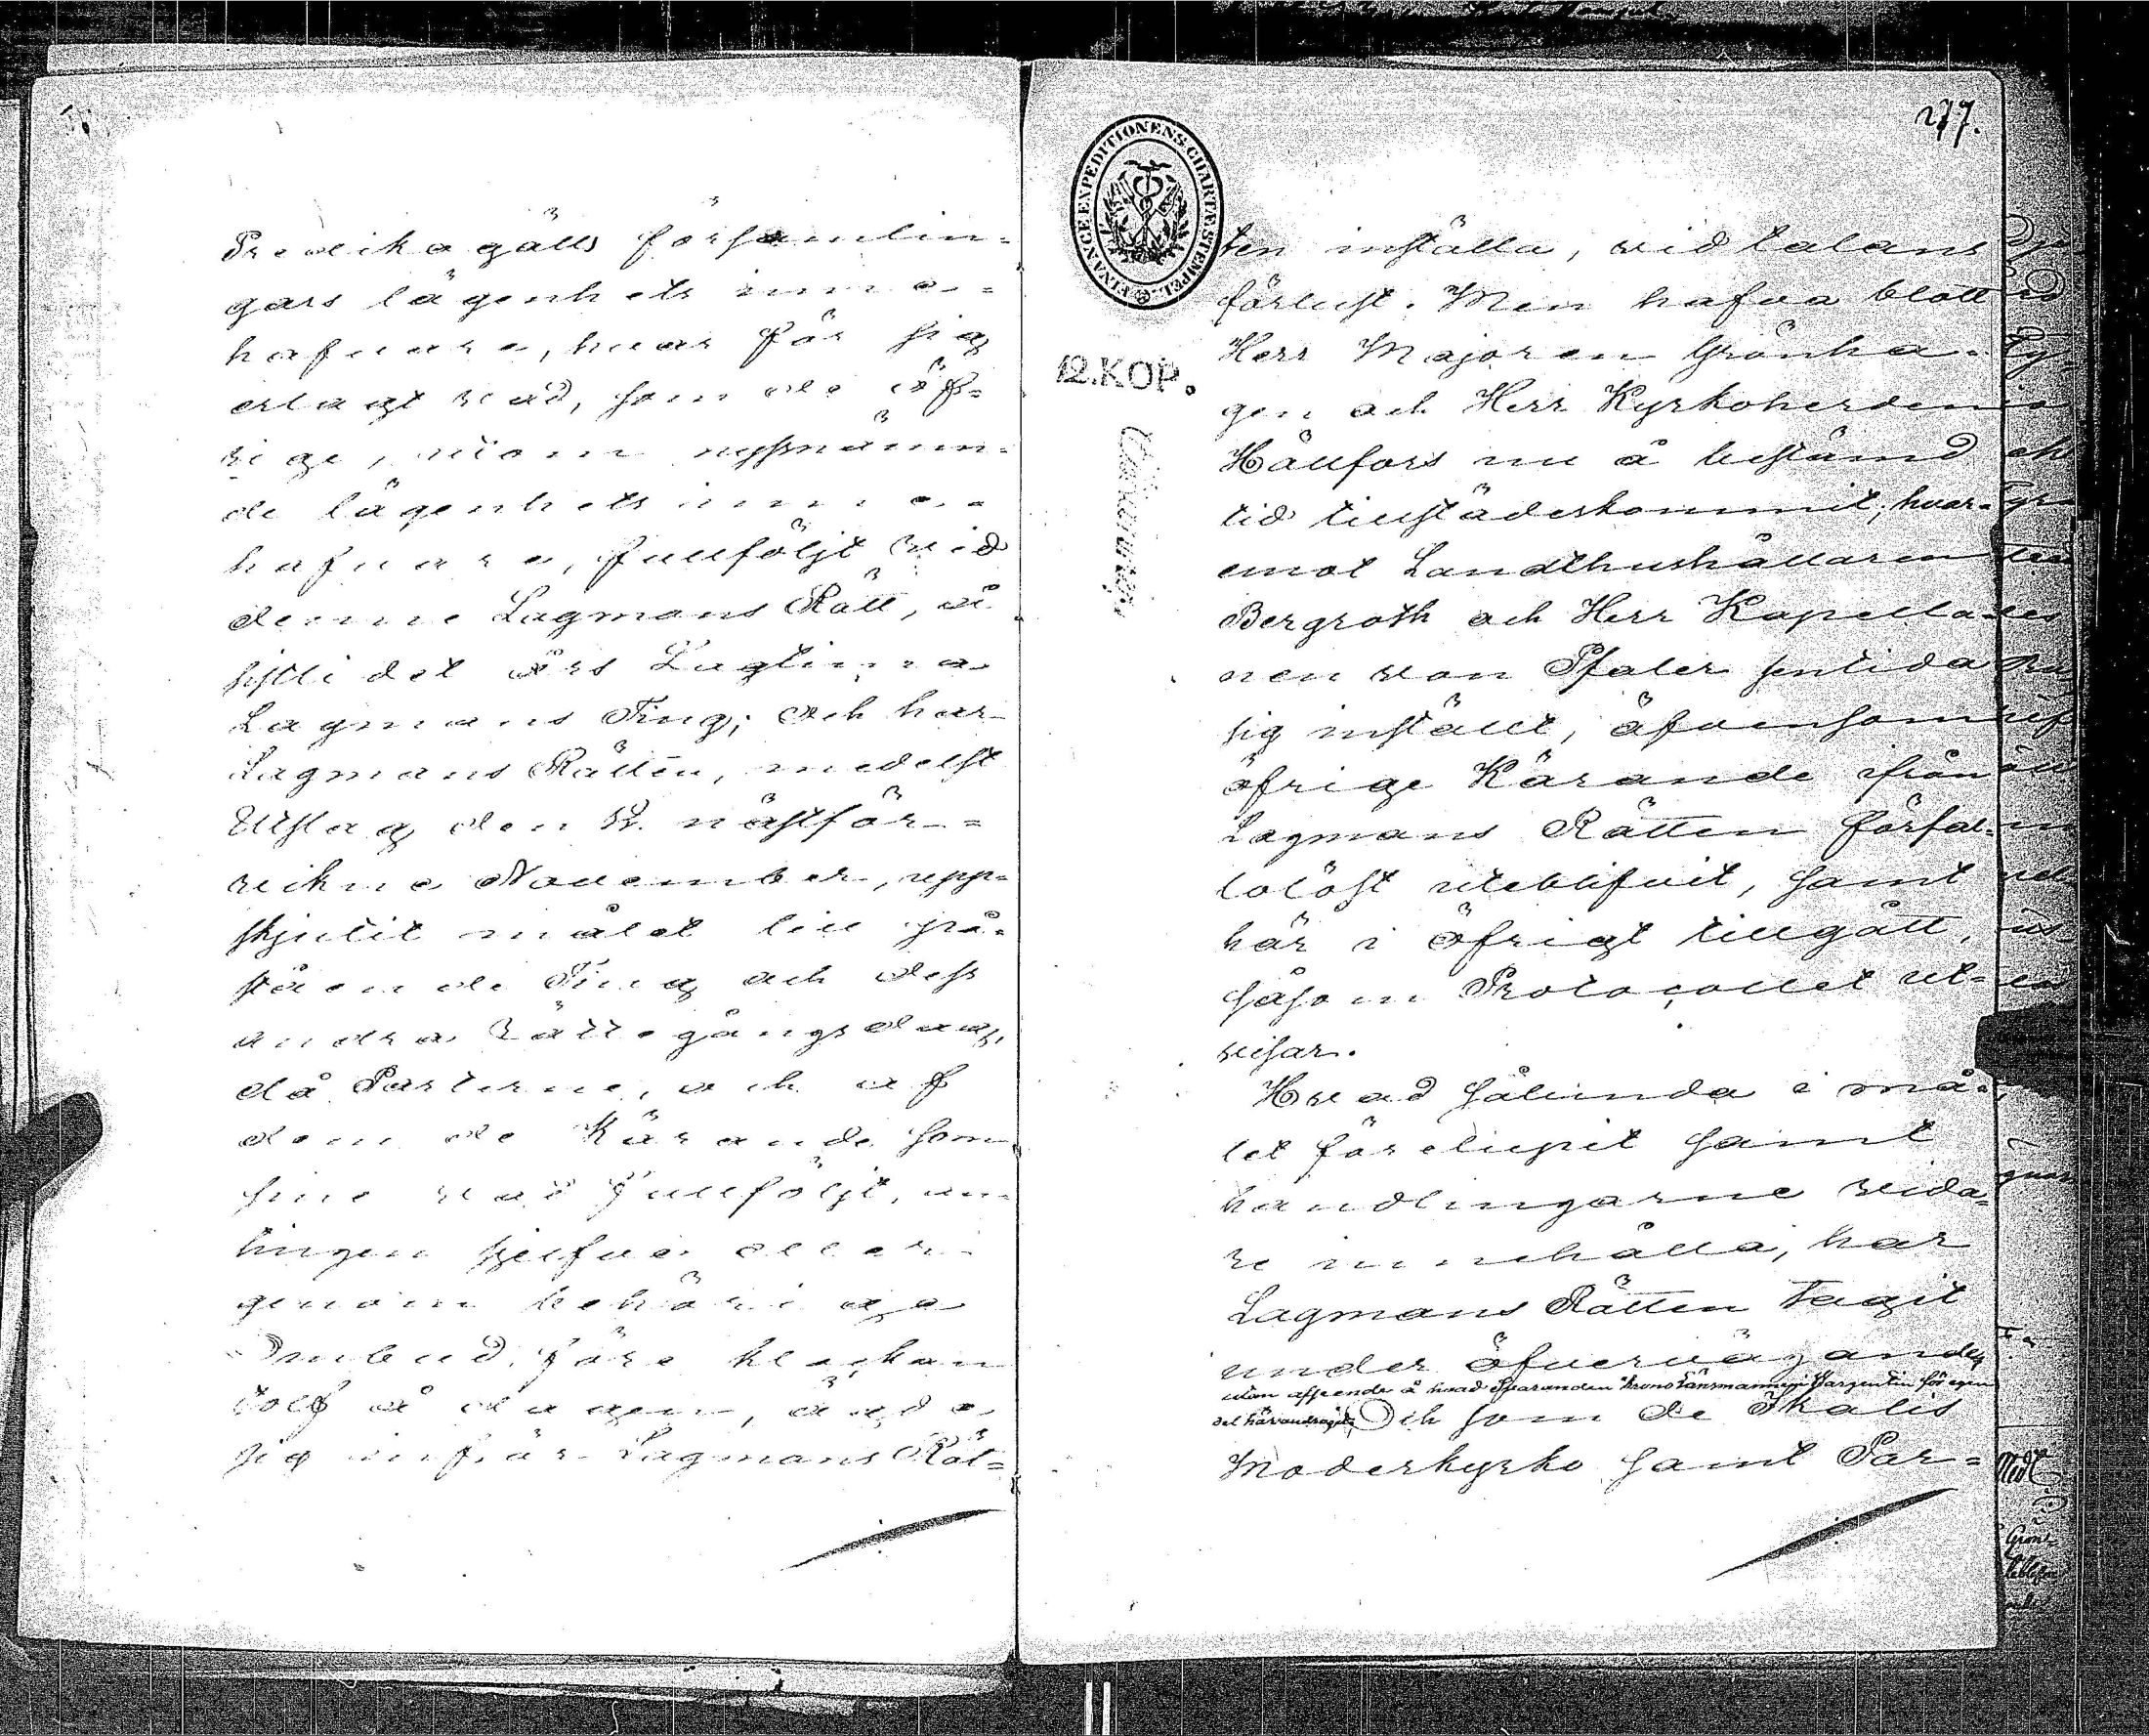 Predikogälls församlin=
gars lägenhets inne=
hafvare, hvar för sig
erlagt vad, som de öf=
rige, utom nyssnämn=
de lägenhets inne=
hafvare, fullföljt vid
denne Lagmans Rätt, å
sistl det års Lagtima
Lagmans Ting; och har
Lagmans Rätten, medelst
Utslag den 12. nästför=
vikne November, upp=
skjutit målet till på=
stående Ting och dess
andra Rättegångsdag,
då Parterne, och af
dem de Kärande som
sine vad fullföljt, an=
tingen sjelfve eller
genom behöriga
Ombud, före klockan
tolf å dagen, ägde
sig inför Lagmans Rät=
277.
FINANCE EXPEDITIONENS CHARTÆ STEMPEL
12.KOP.
ten inställa, vid talans
förlust. Men hafva blott
Herr Majoren Grönha=
gen och Herr Kyrkoherden
Hällfors nu å bestämd
tid tillstädeskommit; hvar=
emot Landthushållaren
Bergroth och Herr Kapella=
nen von Pfaler sentida
sig inställt, äfvensom
öfrige Kärande ifrån
Lagmans Rätten förfal=
lolöst uteblifvit, samt
här i öfrigt tillgått,
såsom Protocollet ut=
visar.
Hvad sålunda i må=
let förelupit samt
handlingarne vida=
re innehålla, har
Lagmans Rätten tagit
under öfvervägande,
utan afseende å hvad Svaranden Krono Länsmannen Wargentin för egen
del härvidandragit; Och som de Ikalis
Moderkyrko samt Par=